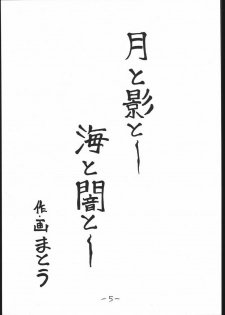 月と影と〜
海と闇と〜
作・画 まとう
-5-